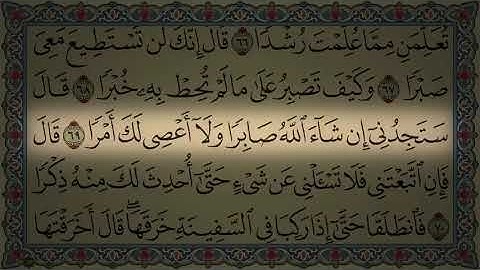 تُعَلِّمَنِ مِمَّا عُلِّمْتَ رُشْدًا ٦٦ قَالَ إِنَّكَ لَن تَسْتَطِيعَ مَعِىَ
صَبْرًا ٦٧ وَكَيْفَ تَصْبِرُ عَلَىٰ مَا لَمْ تُحِطْ بِهِۦ خُبْرًا ٦٨ قَالَ
سَتَجِدُنِىٓ إِن شَآءَ ٱللَّهُ صَابِرًا وَلَآ أَعْصِى لَكَ أَمْرًا ٦٩ قَالَ
فَإِنِ ٱتَّبَعْتَنِى فَلَا تَسْـَٔلْنِى عَن شَىْءٍ حَتَّىٰٓ أُحْدِثَ لَكَ مِنْهُ ذِكْرًا
٧٠ فَٱنطَلَقَا حَتَّىٰٓ إِذَا رَكِبَا فِى ٱلسَّفِينَةِ خَرَقَهَا ۖ قَالَ أَخَرَقْتَهَا